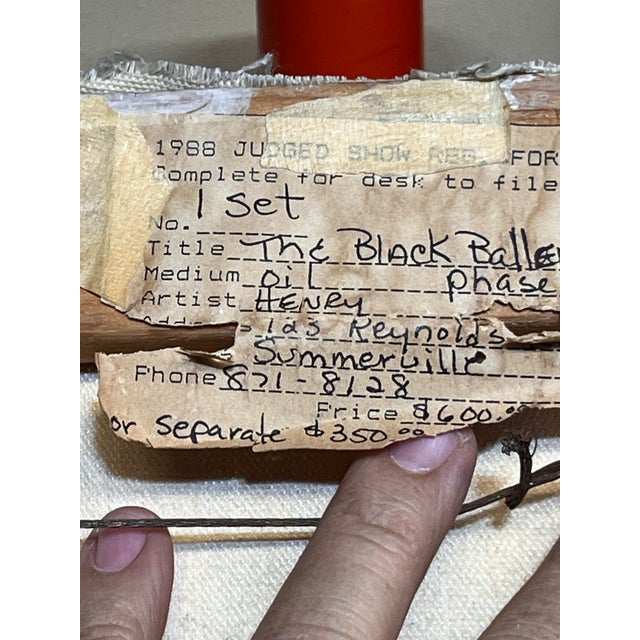 1988 JUDGED SHOW REG. FOR
Complete for desk to file
No. 1 Set
Title The Black Balle
Medium oil phase
Artist HENRY
125 Reynolds
Summerville
Phone 871-8128
Price $600.00
or separate $350.00